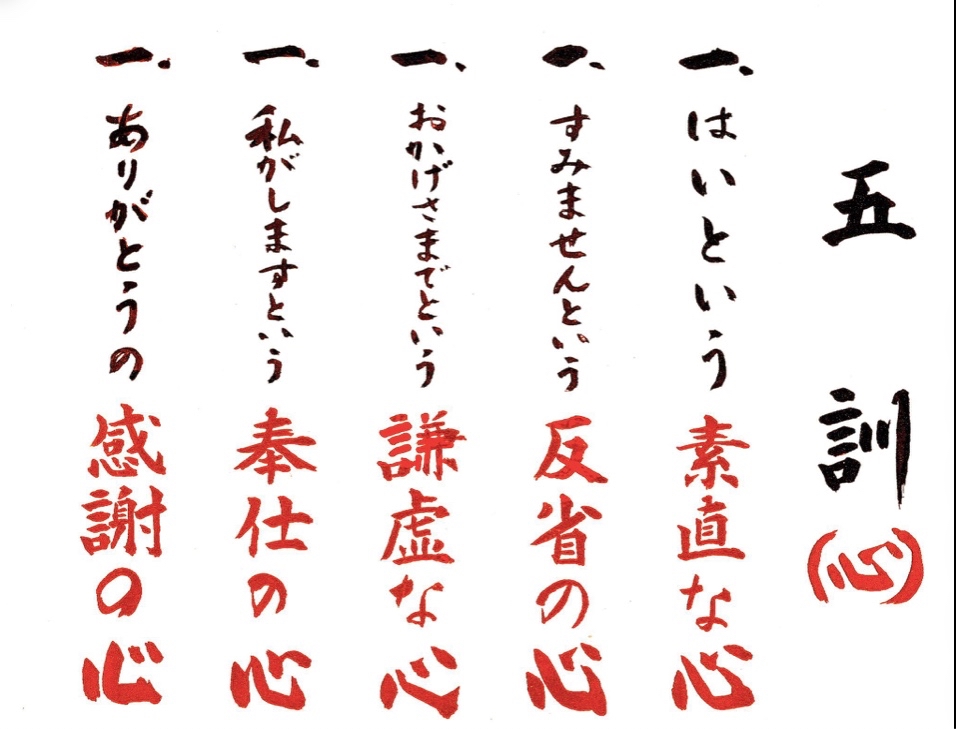 五訓(心)
一、はいという素直な心
一、すみませんという反省の心
一、おかげさまでという謙虚な心
一、私がしますという奉仕の心
一、ありがとうの感謝の心